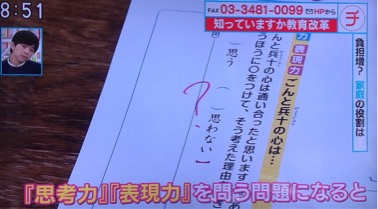 8:51
FAX 03-3481-0099 HPから
知っていますか教育改革
チ
負担増? 家庭の役割は
力 表現力 こんと兵十の心は…
んと兵十の心は通い合ったと思います
うほうに○をつけて、そう考えた理由
)思う
)思わない】
?
『思考力』『表現力』を問う問題になると